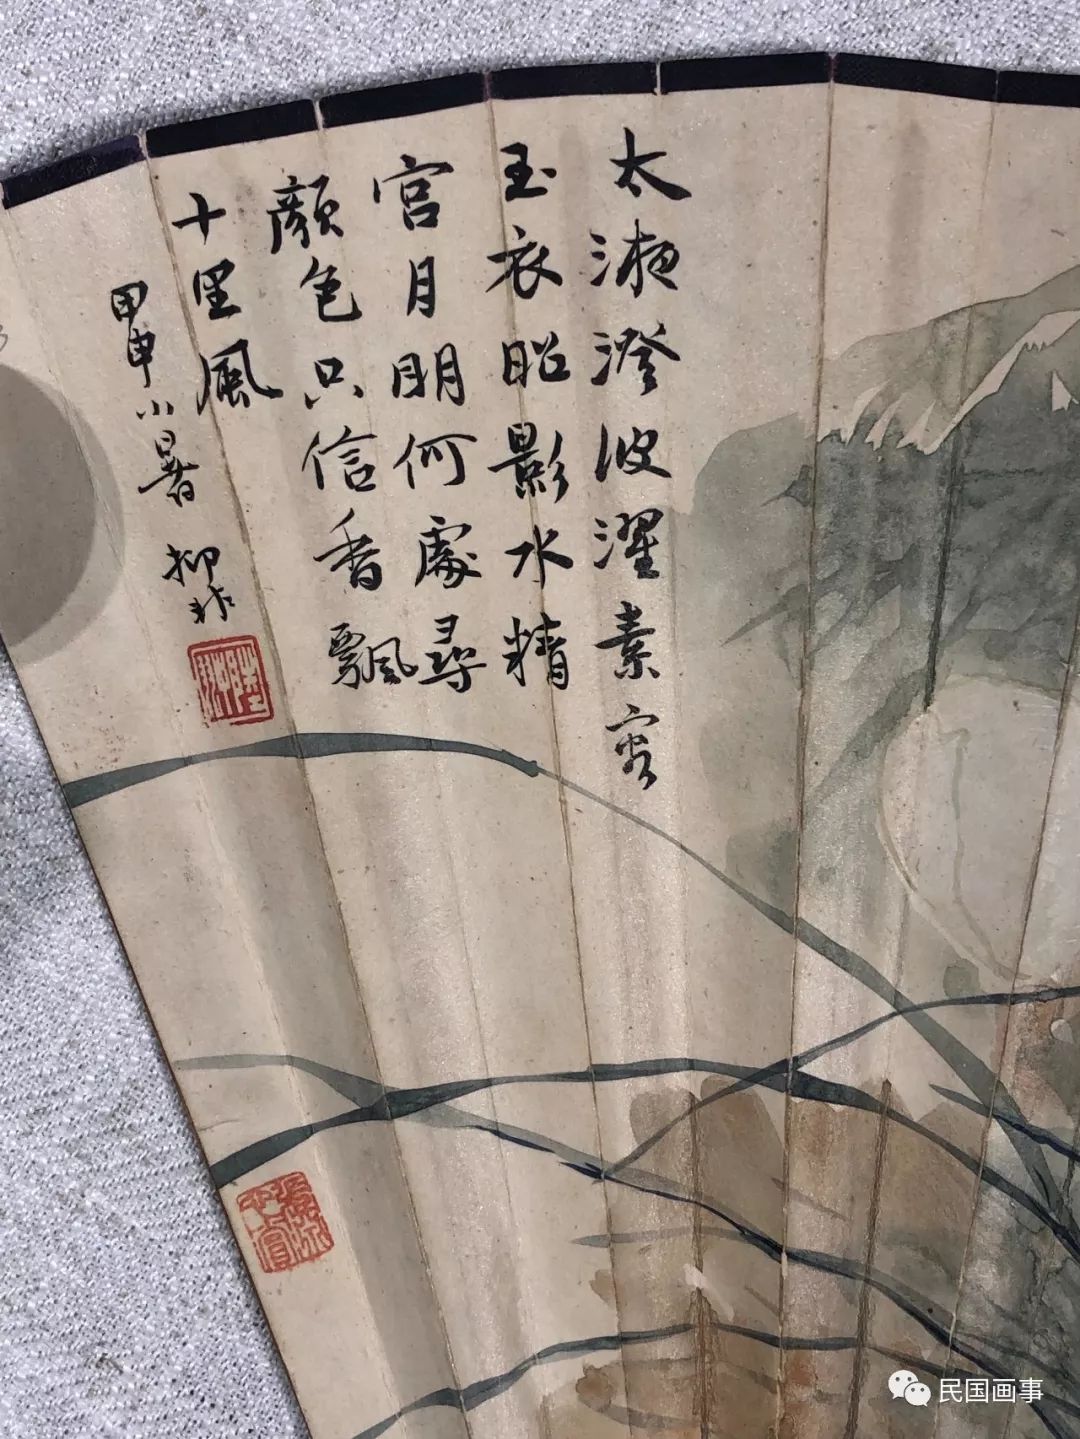 太液澄波濯素容
玉衣昭影水精
宮月明何處尋
顏色只信香飄
十里風
甲申小暑 抑非
民国画事